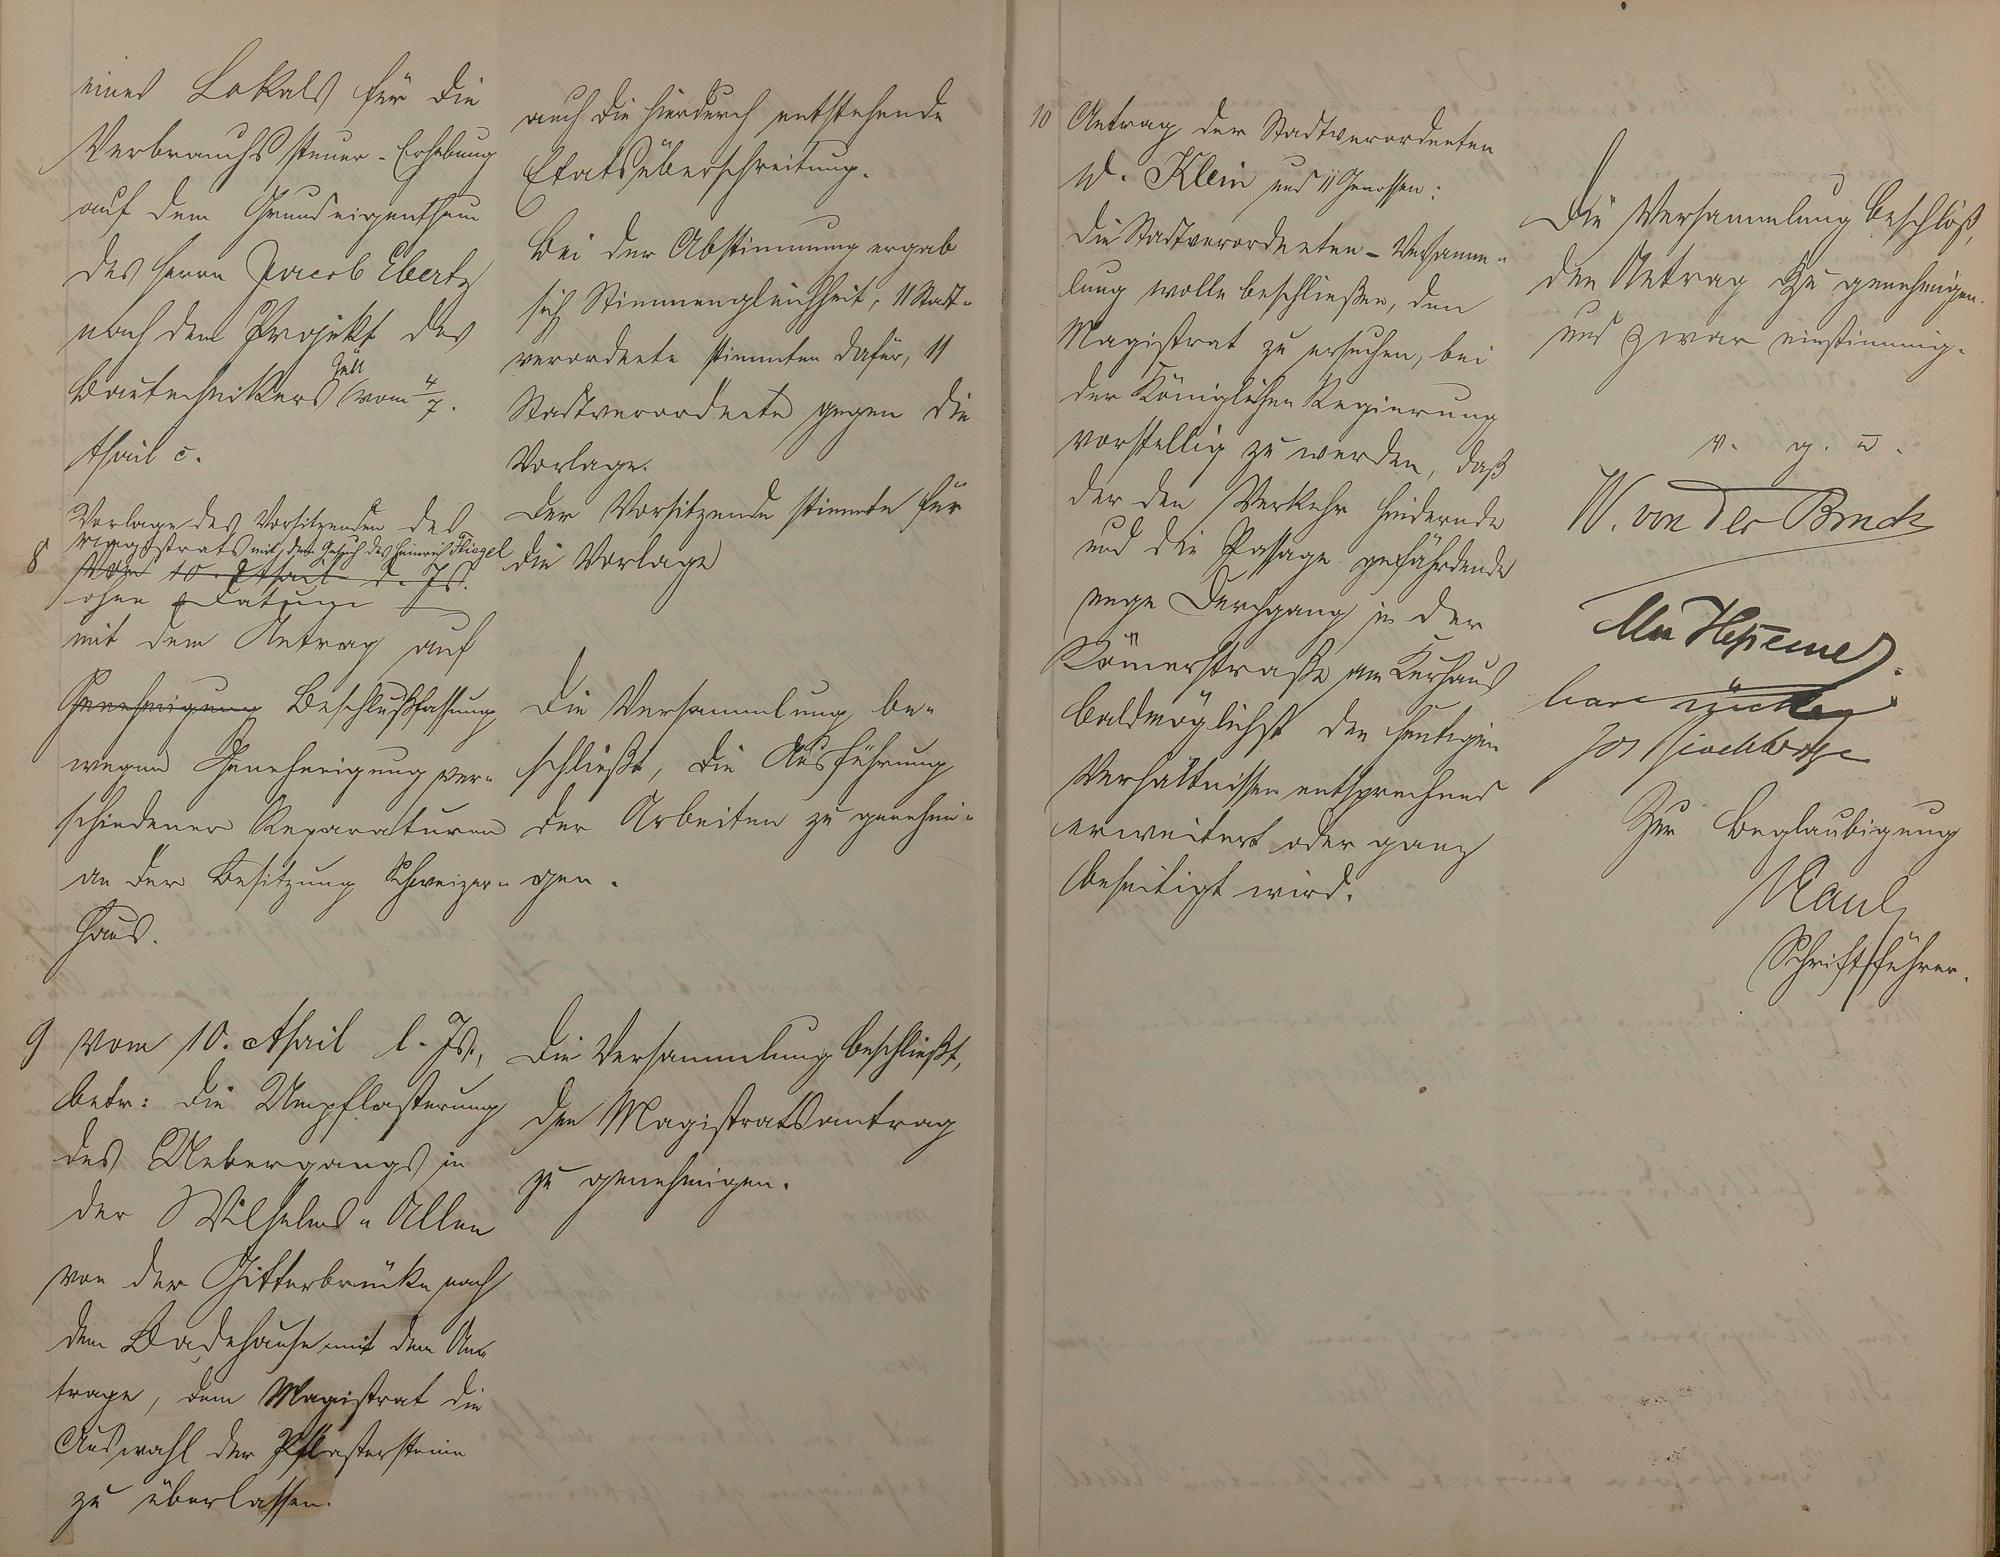 eines Lokals für die
Verbrauchssteuer-Erhebung
auf dem Grundeigenthum
des Herrn Jacob Ebertz
nach dem Projekt des
Bautechnikers vom 4/7.
April c.
8 Vorlage des Vorsitzenden des
Magistrats mit dem Gesuch des Heinrich Fliegel
vom 10. April d. Js.
ohne Datum
mit dem Antrag auf
Genehmigung Beschlußfassung
wegen Genehmigung ver-
schiedener Reparaturen
an der Besitzung Schweizer-
haus.
9 Vom 10. April l. Js.,
betr: die Umpflasterung
des Uebergangs in
der Wilhelms-Allee
von der Gitterbrücke nach
dem Badehause mit dem An-
trage, dem Magistrat die
Auswahl der Pflastersteine
zu überlassen.
auch die hierdurch entstehende
Etatsüberschreitung.
Bei der Abstimmung ergab
sich Stimmengleichheit, 11 Stadt-
verordnete stimmten dafür, 11
Stadtverordnete gegen die
Vorlage.
Der Vorsitzende stimmte für
die Vorlage
Die Versammlung be-
schließt, die Ausführung
der Arbeiten zu genehmi-
gen.
Die Versammlung beschließt,
den Magistratsantrag
zu genehmigen.
10 Antrag der Stadtverordneten
W. Klein und 11 Genossen:
Die Stadtverordneten-Versamm-
lung wolle beschließen, den
Magistrat zu ersuchen, bei
der Königlichen Regierung
vorstellig zu werden, daß
der den Verkehr hindernde
und die Passage gefährdende
enge Durchgang in der
Römerstraße am Kurhaus
baldmöglichst den heutigen
Verhältnissen entsprechend
erweitert oder ganz
beseitigt wird.
Die Versammlung beschloß,
den Antrag zu genehmigen.
und zwar einstimmig.
v. g. u.
W. von der Bruck
Zur Beglaubigung
Kaul
Schriftführer.